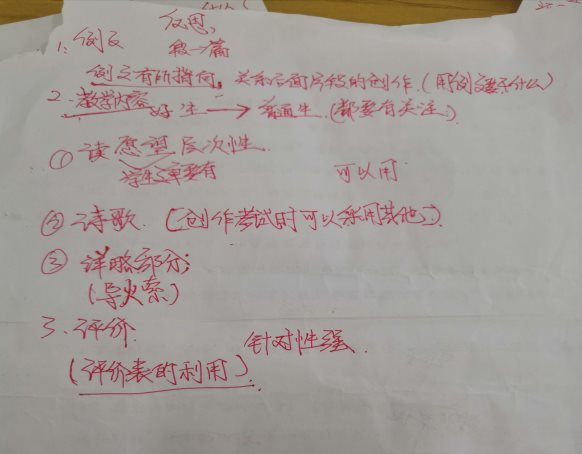 反思
1、例文 段→篇
例文有所指向,关系后面片段的创作。(用例文要示什么)
2、教学内容 好生→普通生(都要有关注)
① 读 层次性.
学生文章要有 可以用
② 诗歌.(创作考试时可以采用其他)
③ 详略部分;
(导火索)
3、评价. 针对性强.
(评价表的利用)